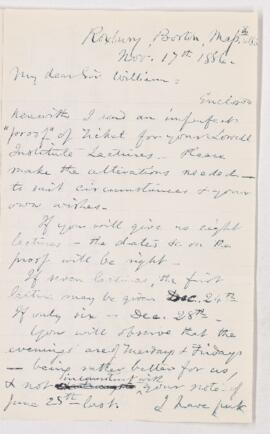 Roxbury, Boston, Mass.
Nov. 17th 1886.
My dear Sir William:
Enclosed
herewith I send an imperfect
"proof" of Ticket for your Lowell
Institute Lectures. Please
make the alterations needed
to suit circumstances & your
own wishes.
If you will give us eight
lectures - the dates &c on the
proof will be right -
If seven lectures, the first
lecture may be given Dec. 24th
If only six - Dec. 28th.
You will observe that the
evenings are Tuesdays & Fridays
- being rather better for us,
inconsistent with
& not your note of
June 25th last.
I have put